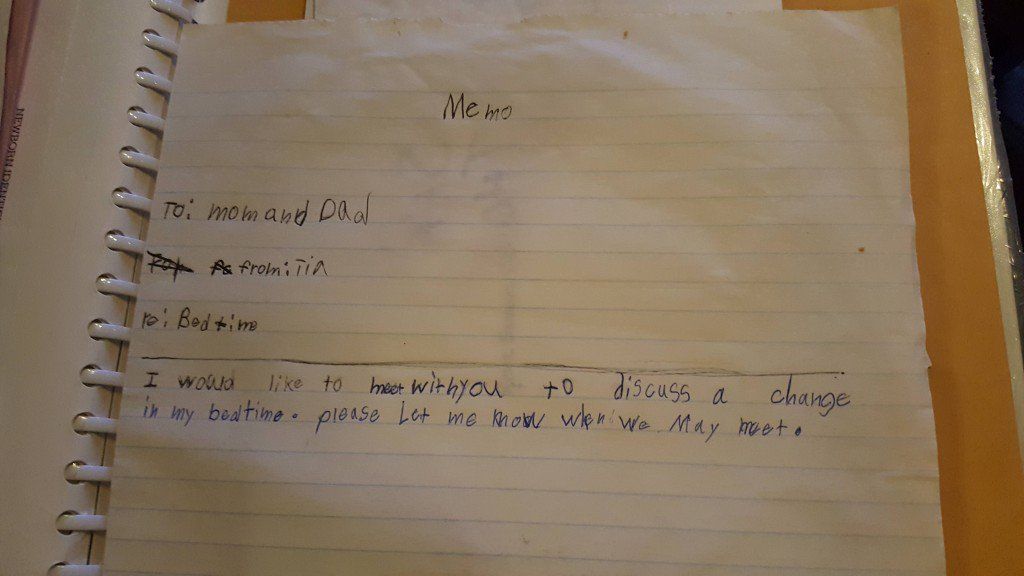 Memo
To: mom and Dad
from: Tia
re: Bedtime
I would like to meet with you to discuss a change
in my bedtime. please Let me know when we May meet.
NEWBORN IDENTIF